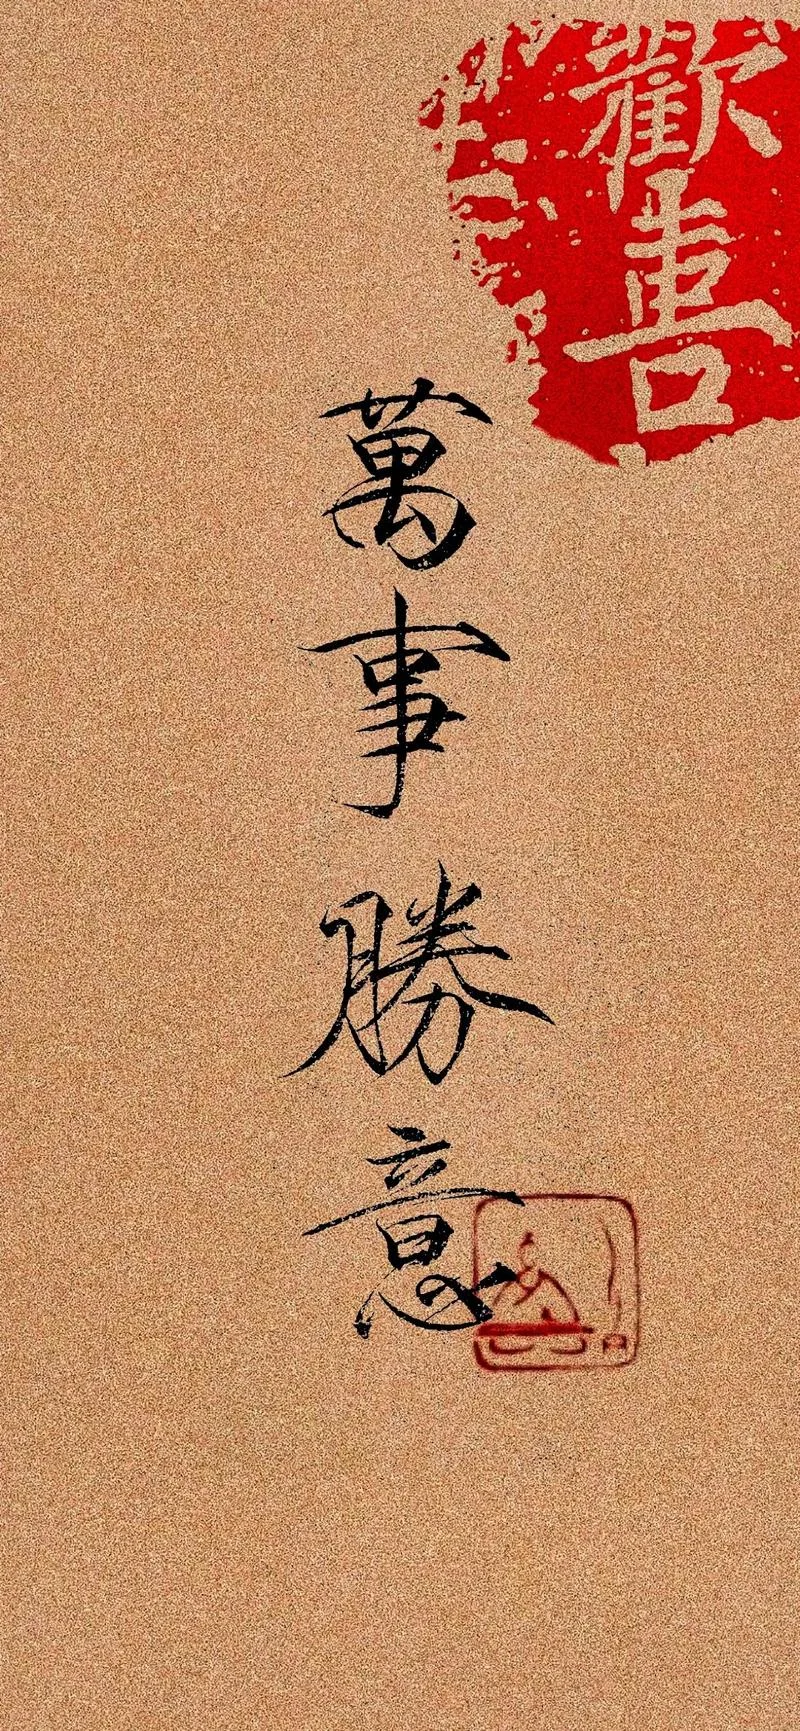 歡喜
萬事勝意